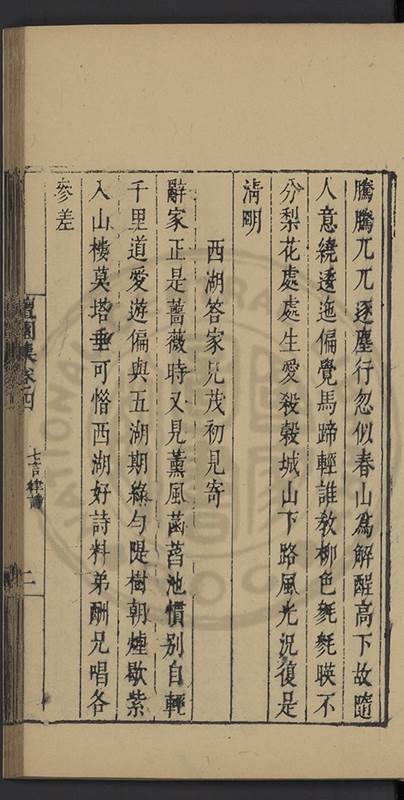 騰騰兀兀逐塵行忽似春山為解酲高下故隨
人意繞逶迤偏覺馬蹄輕誰教柳色毿毿暎不
分梨花處處生愛殺穀城山下路風光況復是
清明
西湖答家兄茂初見寄
辭家正是薔薇時又見薰風菡萏池慣別自輕
千里道愛遊偏與五湖期綠勻隄樹朝煙歇紫
入山樓莫塔垂可惜西湖好詩料弟酬兄唱各
參差
檀園集卷四
七言律詩
二